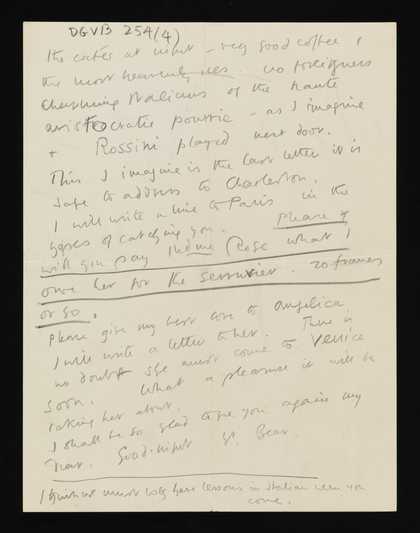 DGVB 254(4)
the cafés at night – very good coffee &
the most heavenly ices. no foreigners
charming Italians of the haute
aristocratic – as I imagine
+ Rossini played next door.
This I imagine is the last letter it is
safe to address to Charleston.
I will write a line to Paris in the
hopes of catching you. Please
will you pay Rose what I
owe her for the serrurier. 20 francs
or so.
Please give my best love to Angelica
I will write a letter to her. There is
no doubt she must come to Venice
soon. What a pleasure it will be
taking her about.
I shall be so glad to see you again my
Bear. Good-night yr. Bear.
I think we must both have lessons in Italian when you
come.